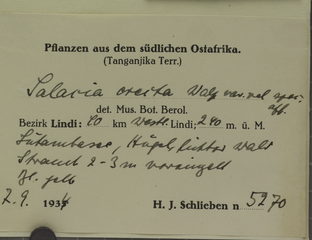 Pflanzen aus dem südlichen Ostafrika.
(Tanganjika Terr.)
Salacia erecta Walp var. vel spec. aff.
det. Mus. Bot. Berol.
Bezirk Lindi: 40 km westl. Lindi; 240 m. ü. M.
Lutambasee, Hügel, lichter Wald
Strauch 2-3 m vereinzelt
Bl. gelb
2.9. 1934 H. J. Schlieben n 5270